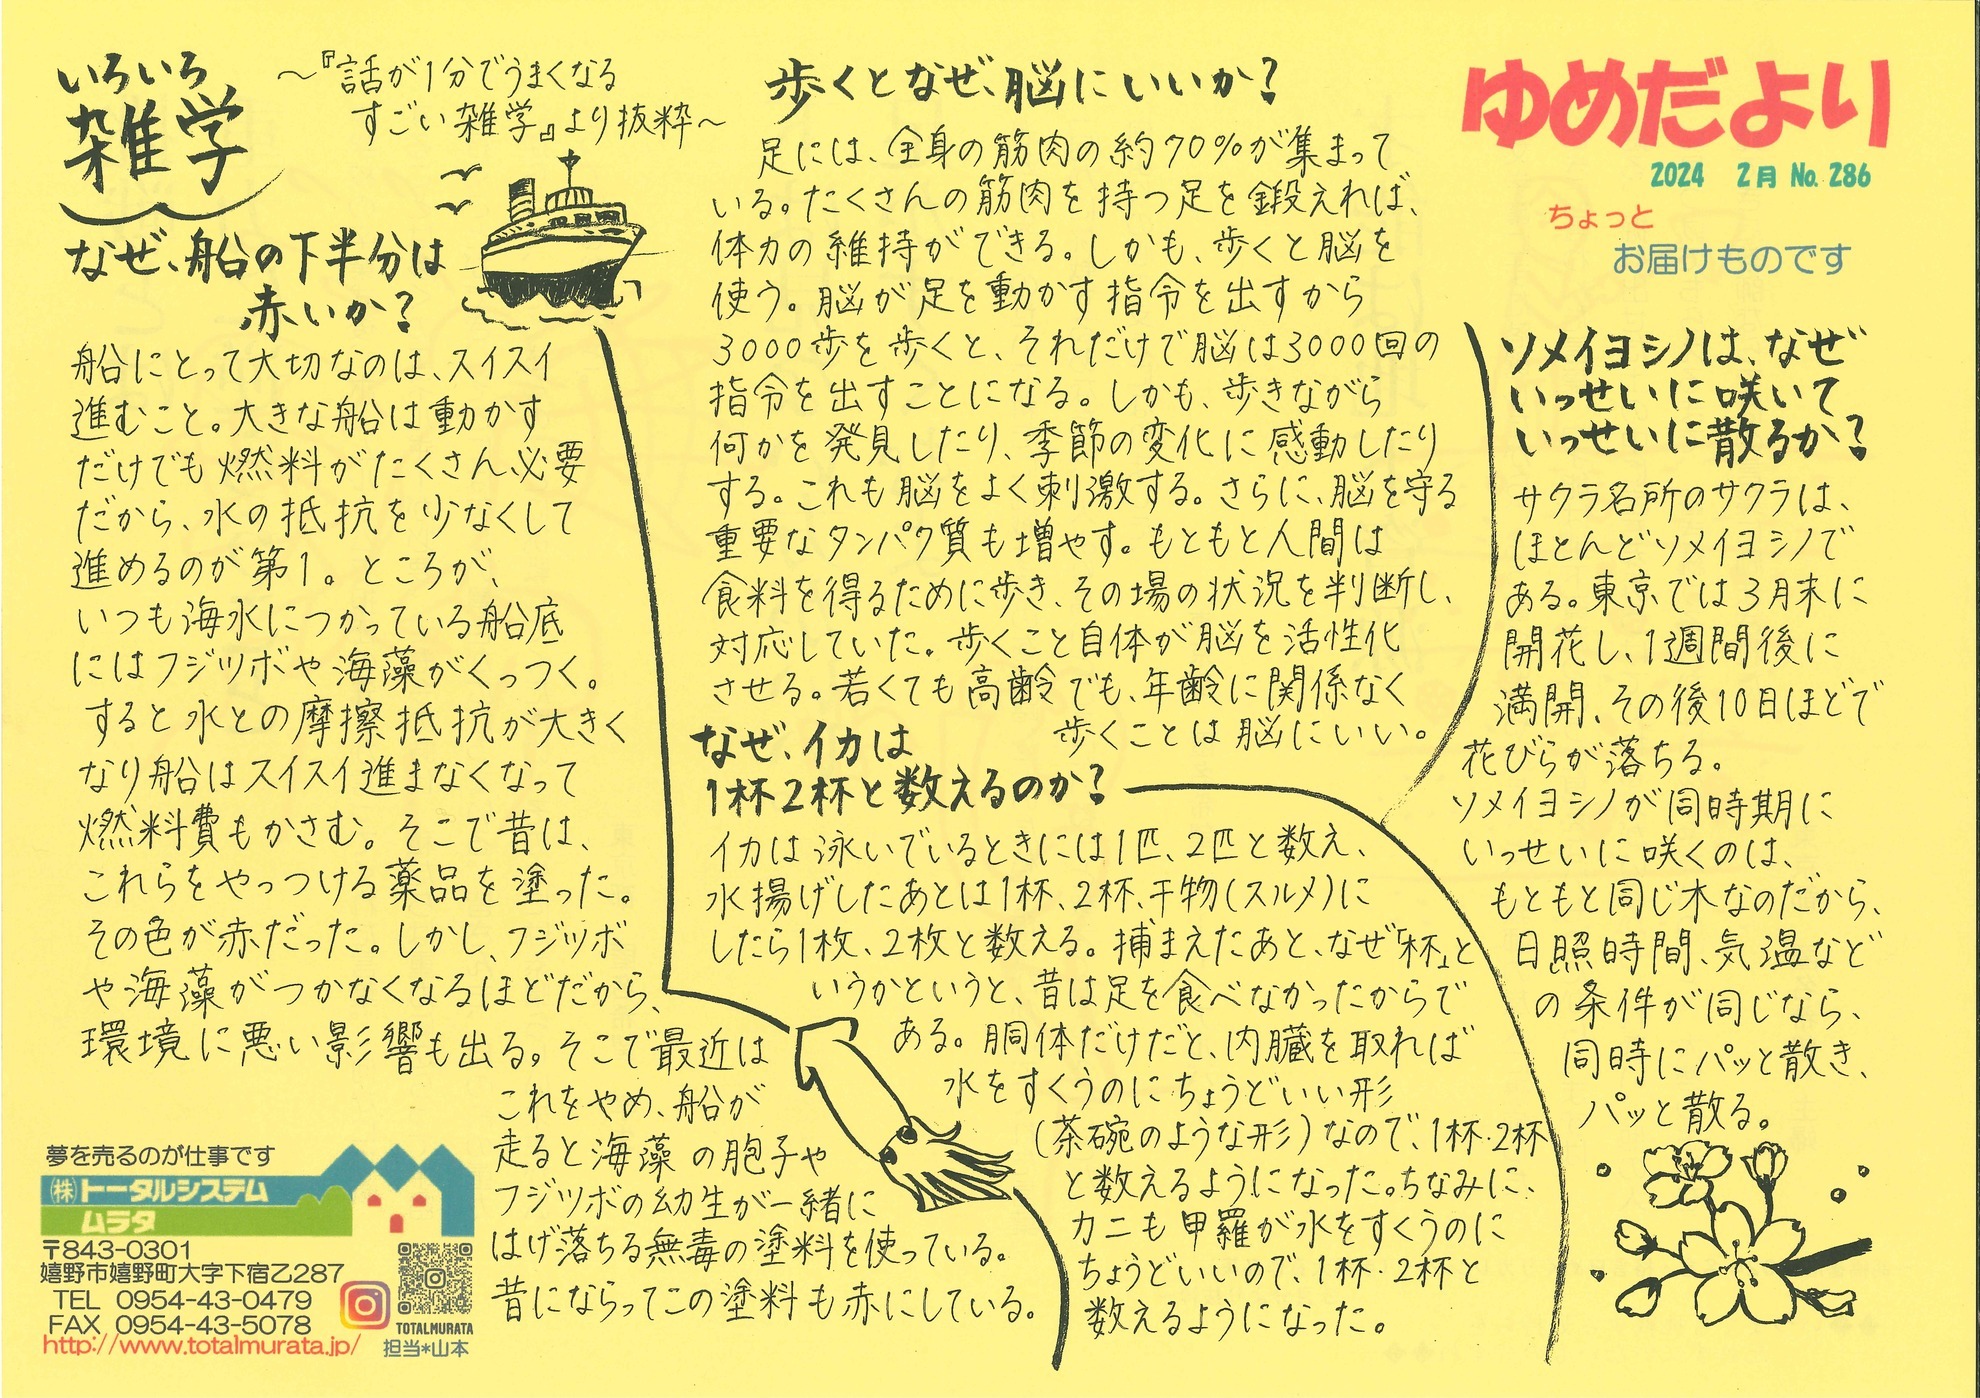 ゆめだより
2024 2月 No. 286
ちょっと
お届けものです
いろいろ
雑学
～『話が1分でうまくなる
すごい雑学』より抜粋～
なぜ、船の下半分は
赤いか？
船にとって大切なのは、スイスイ
進むこと。大きな船は動かす
だけでも燃料がたくさん必要
だから、水の抵抗を少なくして
進めるのが第1。ところが、
いつも海水につかっている船底
にはフジツボや海藻がくっつく。
すると水との摩擦抵抗が大きく
なり船はスイスイ進まなくなって
燃料費もかさむ。そこで昔は、
これらをやっつける薬品を塗った。
その色が赤だった。しかし、フジツボ
や海藻がつかなくなるほどだから、
環境に悪い影響も出る。そこで最近は
これをやめ、船が
走ると海藻の胞子や
フジツボの幼生が一緒に
はげ落ちる無毒の塗料を使っている。
昔にならってこの塗料も赤にしている。
歩くとなぜ、脳にいいか？
足には、全身の筋肉の約70％が集まって
いる。たくさんの筋肉を持つ足を鍛えれば、
体力の維持ができる。しかも、歩くと脳を
使う。脳が足を動かす指令を出すから
3000歩を歩くと、それだけで脳は3000回の
指令を出すことになる。しかも、歩きながら
何かを発見したり、季節の変化に感動したり
する。これも脳をよく刺激する。さらに、脳を守る
重要なタンパク質も増やす。もともと人間は
食料を得るために歩き、その場の状況を判断し、
対応していた。歩くこと自体が脳を活性化
させる。若くても高齢でも、年齢に関係なく
歩くことは脳にいい。
なぜ、イカは
1杯2杯と数えるのか？
イカは泳いでいるときには1匹、2匹と数え、
水揚げしたあとは1杯、2杯、干物(スルメ)に
したら1枚、2枚と数える。捕まえたあと、なぜ「杯」と
いうかというと、昔は足を食べなかったからで
ある。胴体だけだと、内臓を取れば
水をすくうのにちょうどいい形
(茶碗のような形)なので、1杯・2杯
と数えるようになった。ちなみに、
カニも甲羅が水をすくうのに
ちょうどいいので、1杯・2杯と
数えるようになった。
ソメイヨシノは、なぜ
いっせいに咲いて
いっせいに散るか？
サクラ名所のサクラは、
ほとんどソメイヨシノで
ある。東京では3月末に
開花し、1週間後に
満開、その後10日ほどで
花びらが落ちる。
ソメイヨシノが同時期に
いっせいに咲くのは、
もともと同じ木なのだから、
日照時間、気温など
の条件が同じなら、
同時にパッと散き、
パッと散る。
夢を売るのが仕事です
㈱トータルシステム
ムラタ
〒843-0301
嬉野市嬉野町大字下宿乙287
TEL 0954-43-0479
FAX 0954-43-5078
http://www.totalmurata.jp/
TOTALMURATA
担当*山本